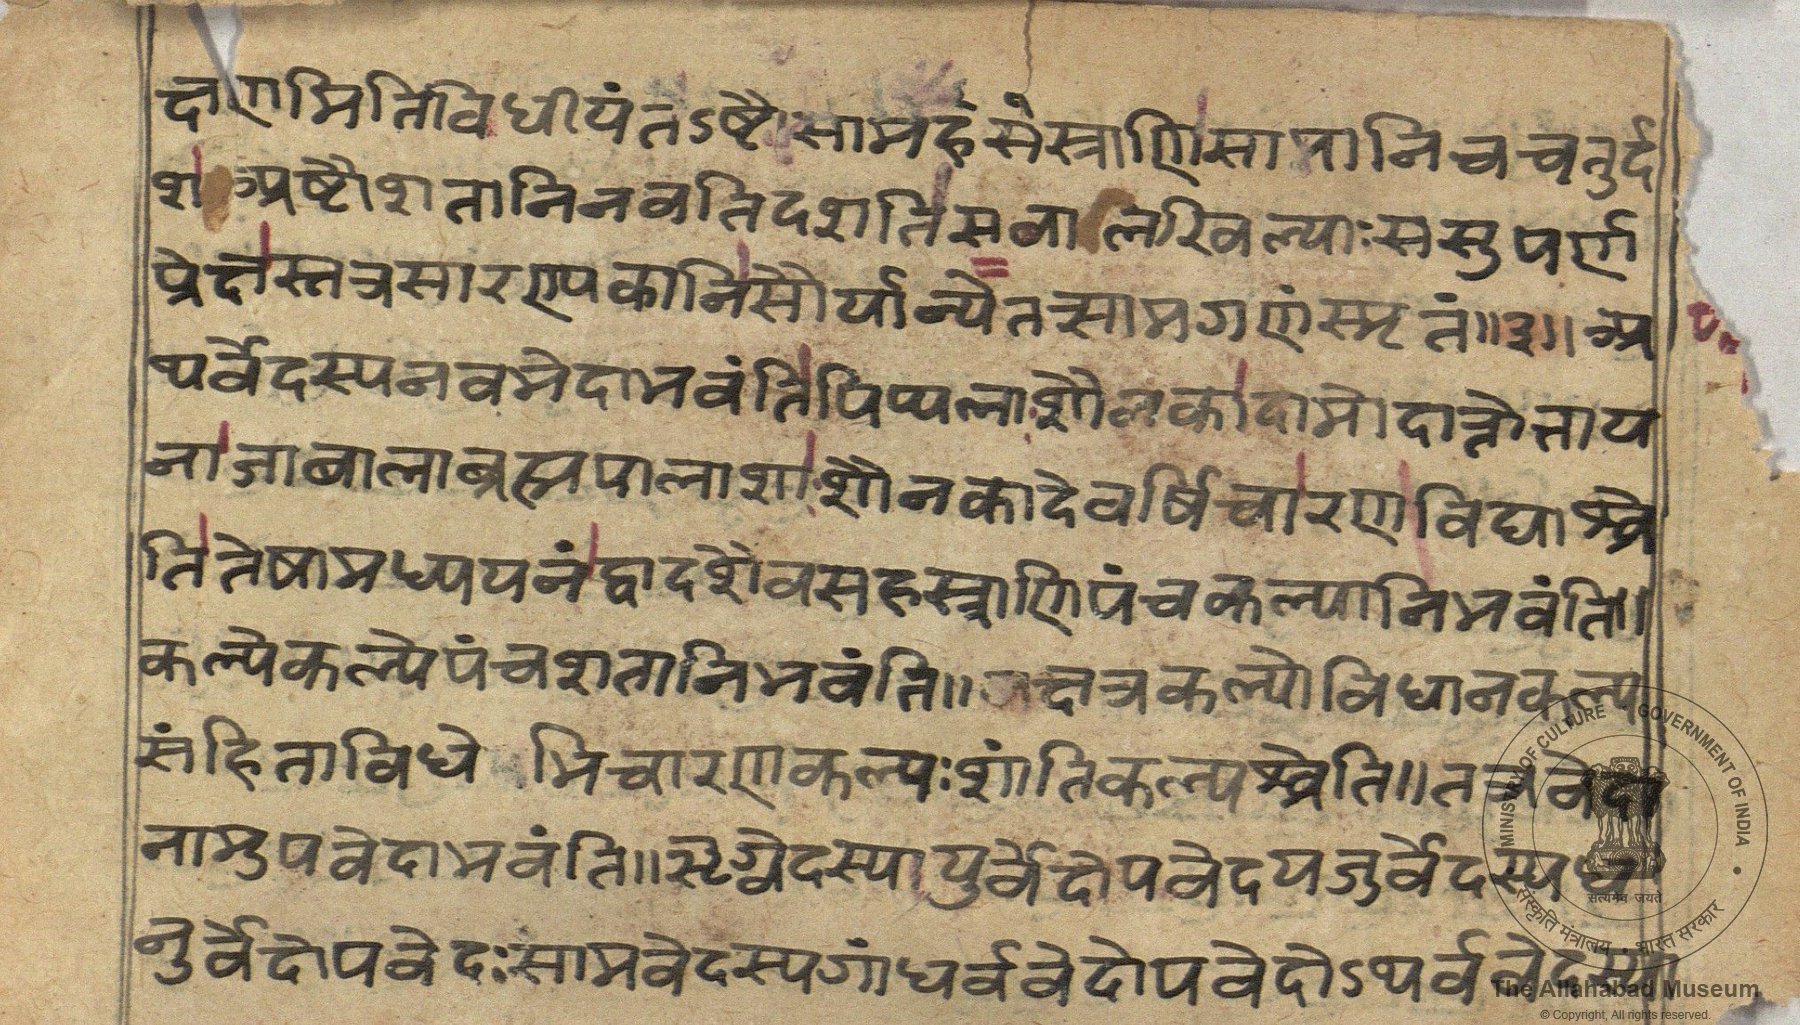 क्षणमितिविधीयंतऽष्टौसामहसेस्त्राणिसामानिचचतुर्द
शअष्टौशतानिनवतिदशतिसवालखिल्याःससुपर्ण
प्रेक्षस्तत्रसारण्यकानिसौर्यान्येतत्सामगणंस्मृतं॥३॥अ
थर्वेदस्यनवभेदाभवंतिपिप्पलाःशौलकादामोदात्तोत्ताय
नाजाबालाब्रह्मपालाशाःशौनकादेवर्षिचारणविद्याश्चे
तितेषामध्ययनंद्वादशैवसहस्त्राणिपंचकल्पानिभवंति॥
कल्पेकल्पेपंचशतानिभवंति॥नक्षत्रकल्पोविधानकल्प
संहिताविधे भिचारणकल्पःशांतिकल्पश्चेति॥तत्रवेदा
नामुपवेदाभवंति॥ऋग्वेदस्यायुर्वेदोपवेदयजुर्वेदस्यध
नुर्वेदोपवेदःसामवेदस्यगांधर्ववेदोपवेदोऽथर्ववेदस्य
MINISTRY OF CULTURE GOVERNMENT OF INDIA
सत्यमेव जयते
संस्कृति मंत्रालय • भारत सरकार
The Allahabad Museum
© Copyright, All rights reserved.